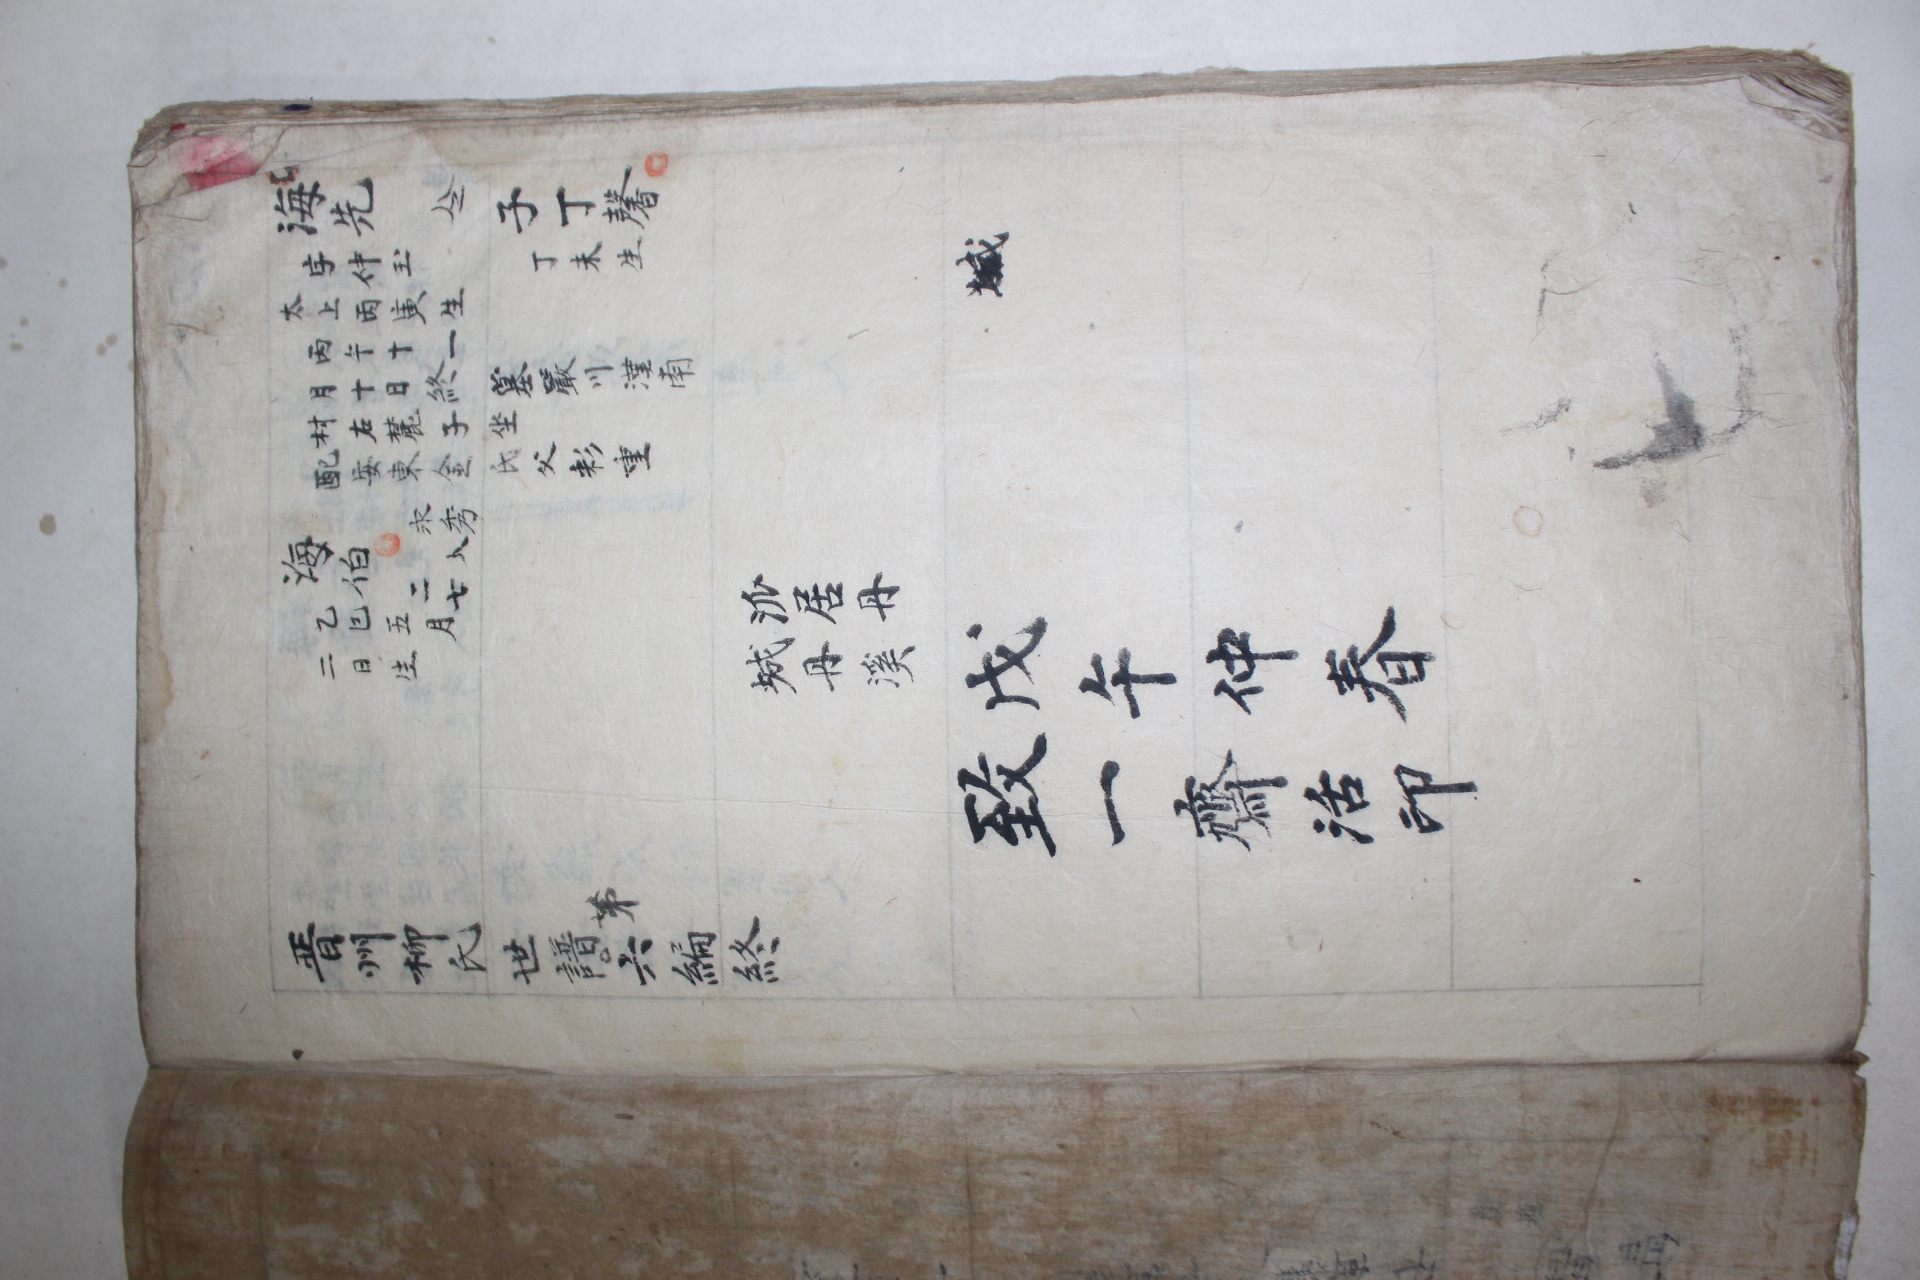 海先
子丁馨
字仲玉
丁未生
太上丙寅生
丙午十一
月十日終
墓嚴川漢南
村右麓子坐
配安東金氏父彩重
永秀
海伯
二七
乙巳五月
二日生
派居丹
城丹溪
城
戊午仲春
致一齋活印
晋州柳氏世譜第六編終